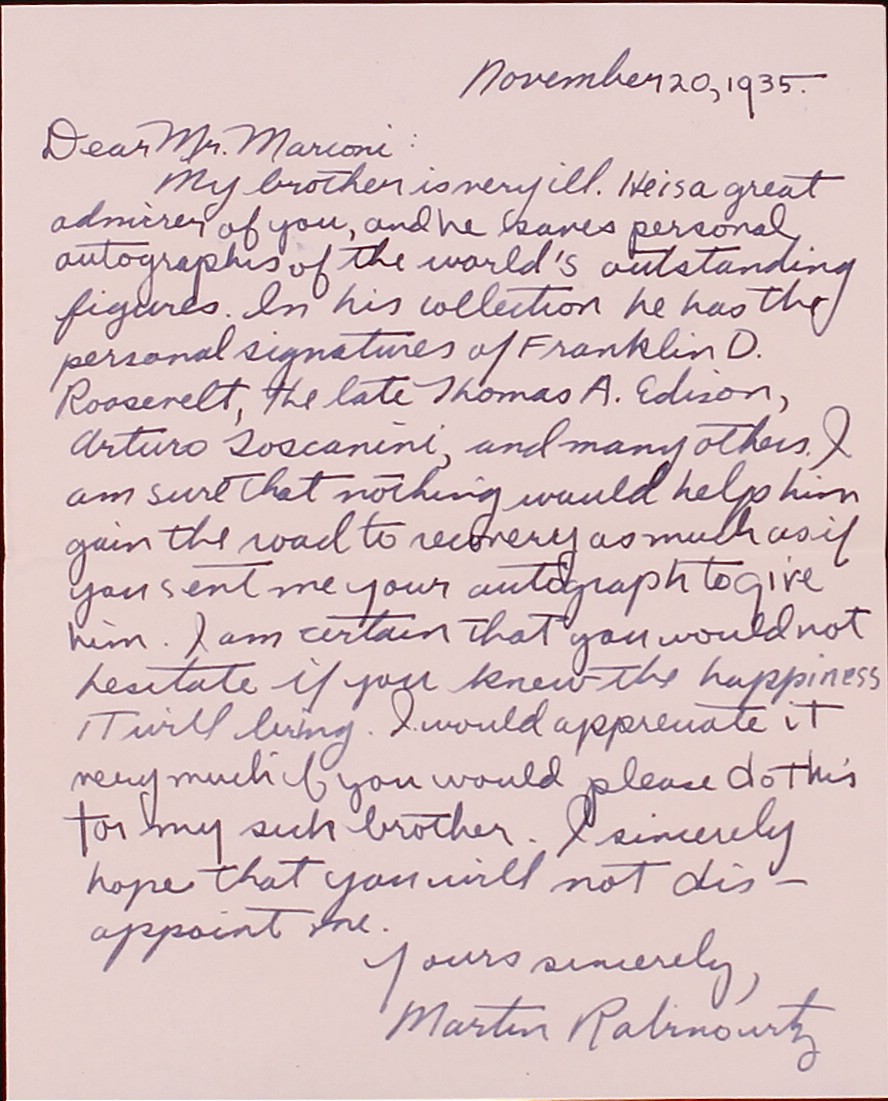 November 20, 1935.
Dear Mr. Marconi:
My brother is very ill. He is a great
admirer of you, and he saves personal
autographs of the world's outstanding
figures. In his collection he has the
personal signatures of Franklin D.
Roosevelt, the late Thomas A. Edison,
Arturo Toscanini, and many others. I
am sure that nothing would help him
gain the road to recovery as much as if
you sent me your autograph to give
him. I am certain that you would not
hesitate if you knew the happiness
it will bring. I would appreciate it
very much if you would please do this
for my sick brother. I sincerely
hope that you will not dis-
appoint me.
Yours sincerely,
Martin Rabinowitz